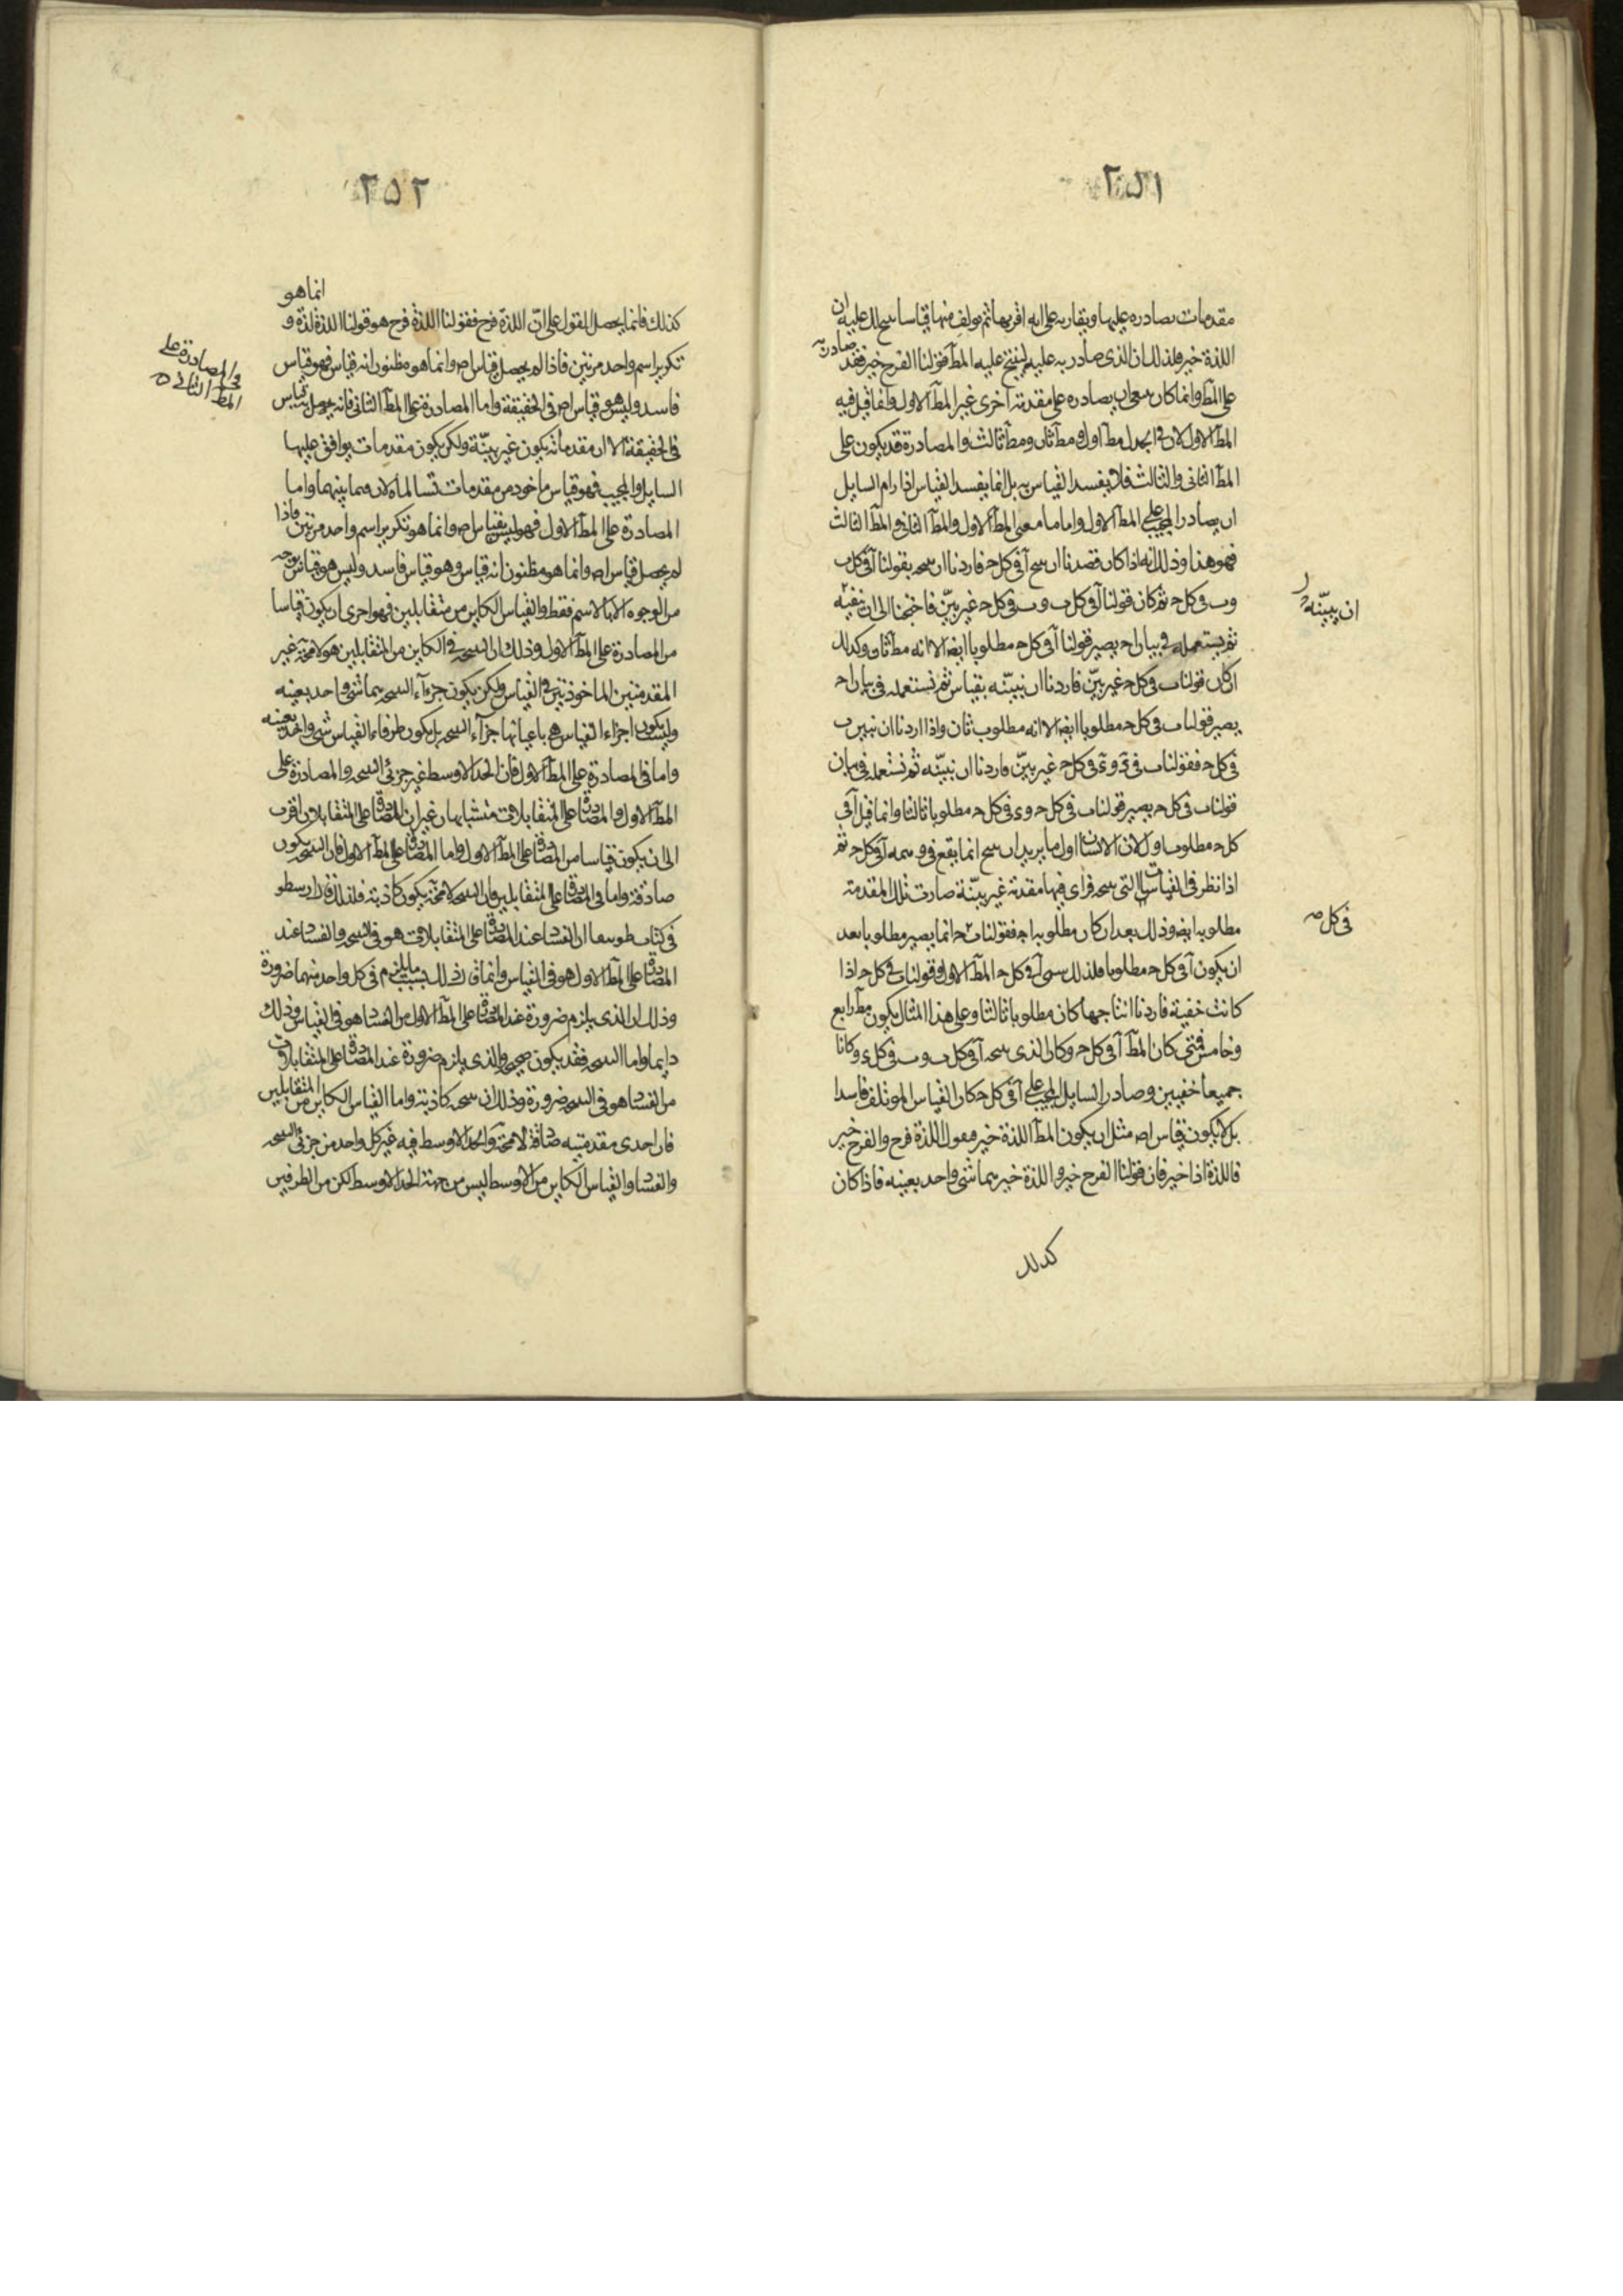 ٢٥١
مقدمات يصادره عليها ويقاربه على انه اقر بها ثم يولف منها قياسا ينتج لك عليه ان
اللذة خير فلذلك ان الذي صادر به عليه لينتج عليه المط قولنا الفرح خير فقد صادر به
على المط وانما كان معنى ان يصادره على مقدمة اخرى غير المط الاول وانما قيل فيه
المط الاول لان في الجدل مط اول ومط ثان ومط ثالث والمصادرة قد يكون على
المط الثاني والثالث فلا يفسد القياس به بل انما يفسد القياس اذا رام السايل
ان يصادر المجيب على المط الاول واما ما معنى المط الاول والمط الثاني والمط الثالث
فهو هذا وذلك انه اذا كان قصدنا ان ننتج آ في كل ح فاردنا ان ننتجه بقولنا آ في كل ب
وب في كل ح ثم كان قولنا آ في كل ب وب في كل ح غير بيّن فاحتجنا الى ان
ان نبيّنه
ثم نستعمله في بيان اح يصير قولنا آ في كل ح مطلوبا ايضا الا انه مط ثان وكذلك
ان كان قولنا ب في كل ح غير بيّن فاردنا ان نبيّنه بقياس ثم نستعمله في بيان اح
يصير قولنا ب في كل ح مطلوبا ايضا الا انه مطلوب ثان واذا اردنا ان نبين ب
في كل ح فقولنا ب في ى وى في كل ح غير بيّن فاردنا ان نبيّنه ثم نستعمله في بيان
قولنا ب في كل ح يصير قولنا ب في كل ح وى في كل ح مطلوبا ثالثا وانما قيل آ في
كل ح مطلوب اول لان الانسان اول ما يريد ان ينتج انما يقع في وهمه آ في كل ح ثم
اذا نظر في القياسات التي ينتجه فراى فيها مقدمة غير بيّنة صارت تلك المقدمة
مطلوبه ايضا وذلك بعد ان كان مطلوبه اح فقولنا ب ح انما يصير مطلوبا بعد
في كل صح
ان يكون آ في كل ح مطلوبا فلذلك سمى آ في كل ح المط الاول وقولنا ب في كل ح اذا
كانت خفية فاردنا انتاجها كان مطلوبا ثالثا وعلى هذا المثال يكون مط رابع
وخامس فمتى كان المط آ في كل ح وكان الذي ينتجه آ في كل ب وب في كل ى وكانا
جميعا خفيين وصادر السايل المجيب على آ في كل ح كان القياس الموتلف فاسدا
بل لا يكون قياس اصلا مثل ان يكون المط اللذة خير فيقول اللذة فرح والفرح خير
فاللذة اذا خير فان قولنا الفرح خير واللذة خير هما شى واحد بعينه فاذا كان
كذلك
٢٥٢
كذلك فانما يحصل القول على انّ اللذة فرح فقولنا اللذة فرح هو قولنا اللذة لذة و انما هو
تكرير اسم واحد مرتين فاذا لم يحصل قياس اصلا وانما هو مظنون انه قياس فهو قياس
فاسد وليس هو قياس اصلا في الحقيقة واما المصادرة على المط الثاني فانه يحصل به قياس
والمصادرة على
المط الثالث
في الحقيقة الا ان مقدماته يكون غير بيّنة ولكن يكون مقدمات يوافق عليها
السايل والمجيب فهو قياس ماخوذ من مقدمات تسالماه لان فيما بينهما واما
المصادرة على المط الاول فهو ليس بقياس اصلا وانما هو تكرير اسم واحد مرتين فاذا
لم يحصل قياس اصلا وانما هو مظنون انه قياس وهو قياس فاسد وليس هو قياس بوجه
من الوجوه الا بالاسم فقط والقياس الكاين من متقابلين فهو احرى ان يكون قياسا
من المصادرة على المط الاول وذلك ان النتيجه في الكاين من المتقابلين هو لا محة غير
المقدمتين الماخوذتين في القياس ولكن يكون جزءآ النتيجه هما شى واحد بعينه
وليس يكون اجزاء القياس هي باعيانها جزآء النتيجه بل يكون طرفاء القياس شى واحد بعينه
واما في المصادرة على المط الاول فان الحد الاوسط غير جزئى النتيجه والمصادرة على
المط الاول والمصادرة على المتقابلات متشابهان غير ان المصادرة على المتقابلات اقرب
الى ان يكون قياسا من المصادرة على المط الاول واما المصادرة على المط الاول فان النتيجه يكون
صادقة واما في المصادرة على المتقابلين فان النتيجه لا محة يكون كاذبة فلذلك قال ارسطو
في كتاب طوبيقا ان الفساد عند المصادرة على المتقابلات هو في النتيجه والفساد عند
المصادرة على المط الاول هو في القياس وانما قال ذلك بسبب ما يلزم في كل واحد منهما ضرورة
وذلك ان الذي يلزم ضرورة عند المصادرة على المط الاول من الفساد هو في القياس وذلك
دايما واما النتيجه فقد يكون صحيحه والذي يلزم ضرورة عند المصادرة على المتقابلات
من الفساد هو في النتيجه ضرورة وذلك ان نتيجه كاذبة واما القياس الكاين من المتقابلين
فان احدى مقدمتيه صادقة لا محة والحد الاوسط فيه غير كل واحد من جزئى النتيجه
والفساد والقياس الكاين من الاوسط ليس من جهة الحد الاوسط لكن من الطرفين